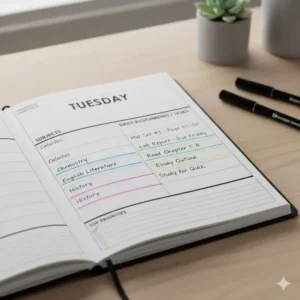 TUESDAY
SUBJECTS DAILY ASSIGNMENTS/TASKS
Calculus Due Set #3 - Page 45-50
Calculus Lab Report - Due Friday
Chemistry Read Chapter 5-6
English Literature Essay Outline
History Study for Quiz
History
TOP PRIORITIES